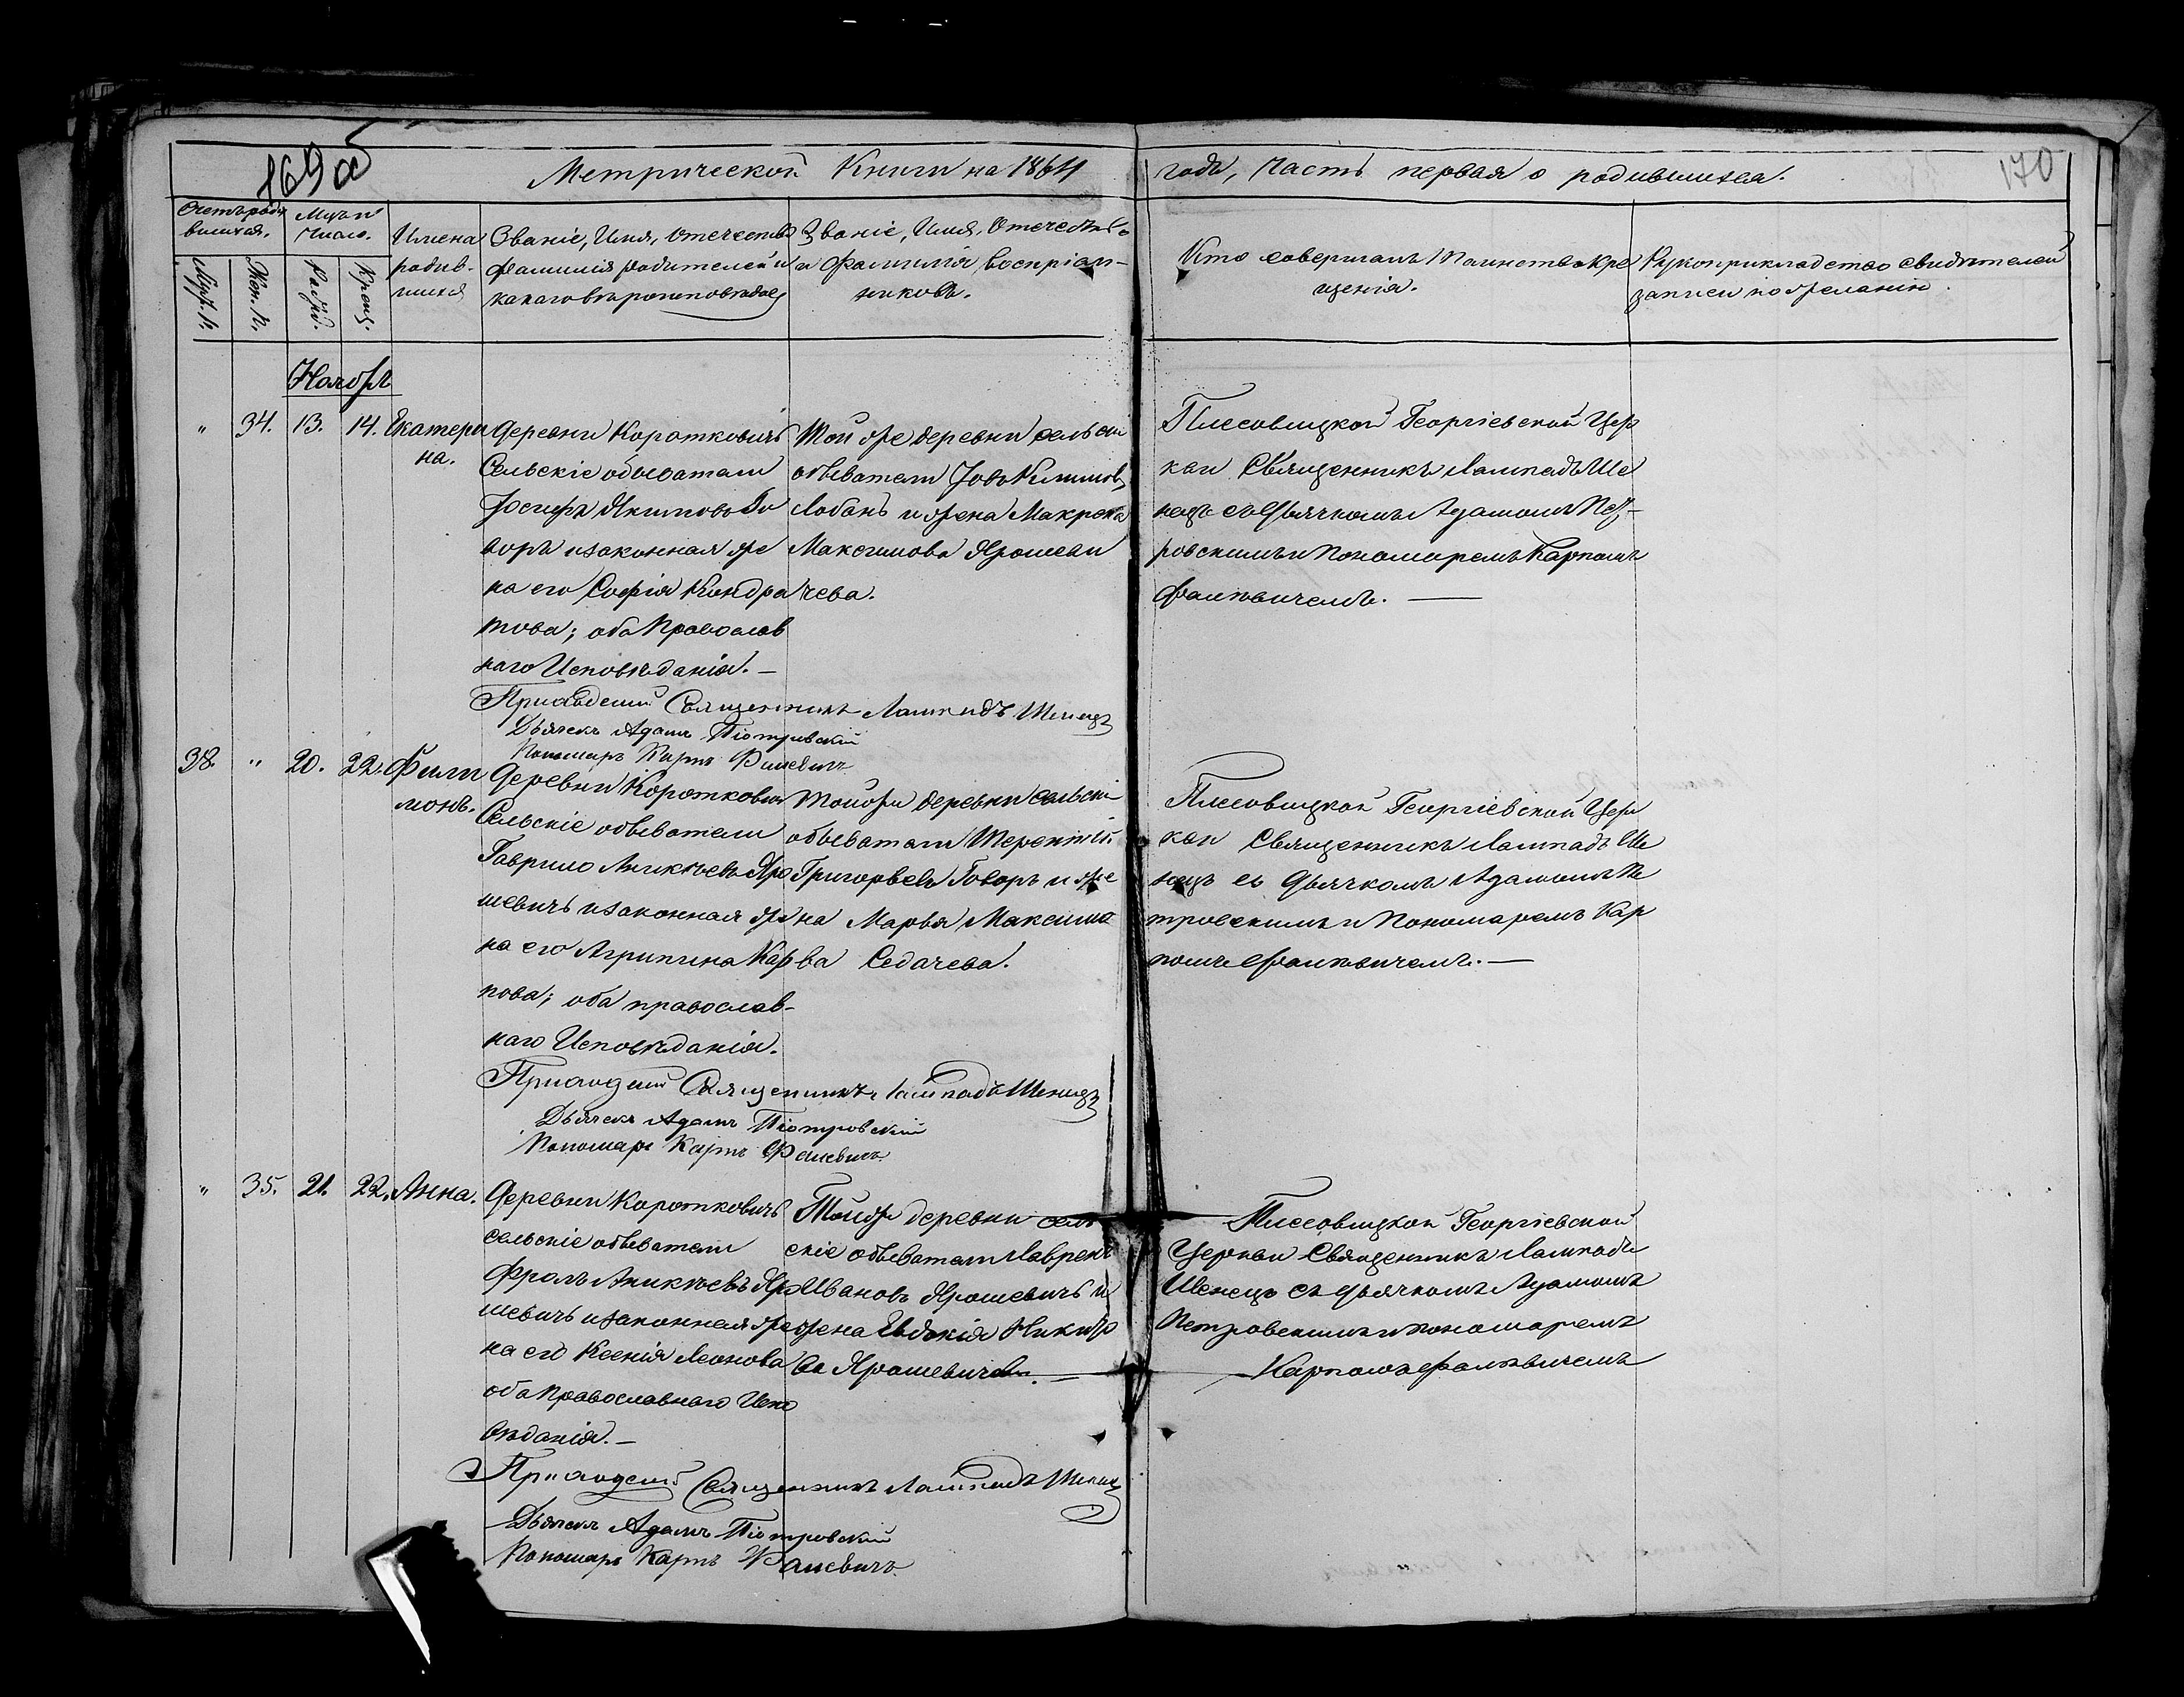 169 об
Метрической Книги на 1864
года, Часть первая о родившихся.
170
Счетъ родившихся.
Муж. п.
Жен. п.
Мѣц. и число.
Рожд.
Крещ.
Имена
родив-
шихся
Званіе, Имя, Отчество
Фамилія родителей и
какаго вѣроисповѣдас,
Званіе, Имя, Отечество
и Фамилія воспріем-
никовъ.
Кто совершалъ Таинство Кре
щенія.
Рукоприкладство свидѣтелей
записи по желанію.
Ноябрь
„ 34. 13. 14. Екатери
на.
Деревни Короткович
Сельскіе обыватели
Іосифъ Якимовъ Го
воръ и законная же
на его Софія Кондра
това; оба Православ
наго Исповѣданія. —
Той же деревни сельскі
обыватели Іовъ Климов
Лобанъ и жена Макрена
Максимова Ярошеви
чева.
Плесовицкой Георгіевской Цер
кви Священникъ Лампадъ Ше
нецъ съ Дьячкомъ Адамомъ Пет-
ровскимъ и Пономаремъ Карпомъ
Фалевичемъ. —
Приходскій Священникъ Лампадъ Шенецъ
Дьячекъ Адамъ Піотровскій
Пономарь Карпъ Фалевичъ
38. „ 20. 22. Фили
монъ.
Деревни Короткович
Сельскіе обыватели
Гаврило Аникѣевъ Яро
шевичъ и законная же
на его Агрипина Кар
пова; оба православ-
наго Исповѣданія.
Той же деревни сельскі
обыватели Терентій
Григорьевъ Говоръ и же
на Марья Максимо
ва Седачева.
Плесовицкой Георгіевской Цер
кви Священникъ Лампадъ Ше
нецъ съ Дьячкомъ Адамомъ Пе
тровскимъ и Пономаремъ Кар
помъ Фалевичемъ. —
Приходскій Священникъ Лампадъ Шенецъ
Дьячекъ Адамъ Піотровскій
Пономарь Карпъ Фалевичъ
„ 35. 21. 22. Анна.
Деревни Короткович
сельскіе обыватели
Фролъ Аникѣевъ Яро
шевичъ и законная же
на его Ксенія Леонова
оба Православнаго Испо
вѣданія. —
Той же деревни сель
скіе обыватели Лаврен
Ивановъ Ярошевичъ и
жена Евдокія Никифо
ва Ярошевичева. —
Плесовицкой Георгіевской
Церкви Священникъ Лампадъ
Шенецъ съ дьячкомъ Адамомъ
Петровскимъ и пономаремъ
Карпомъ Фалевичемъ
Приходскій Священникъ Лампадъ Шенец
Дьячекъ Адамъ Піотровскій
Пономарь Карпъ Фалевичъ.